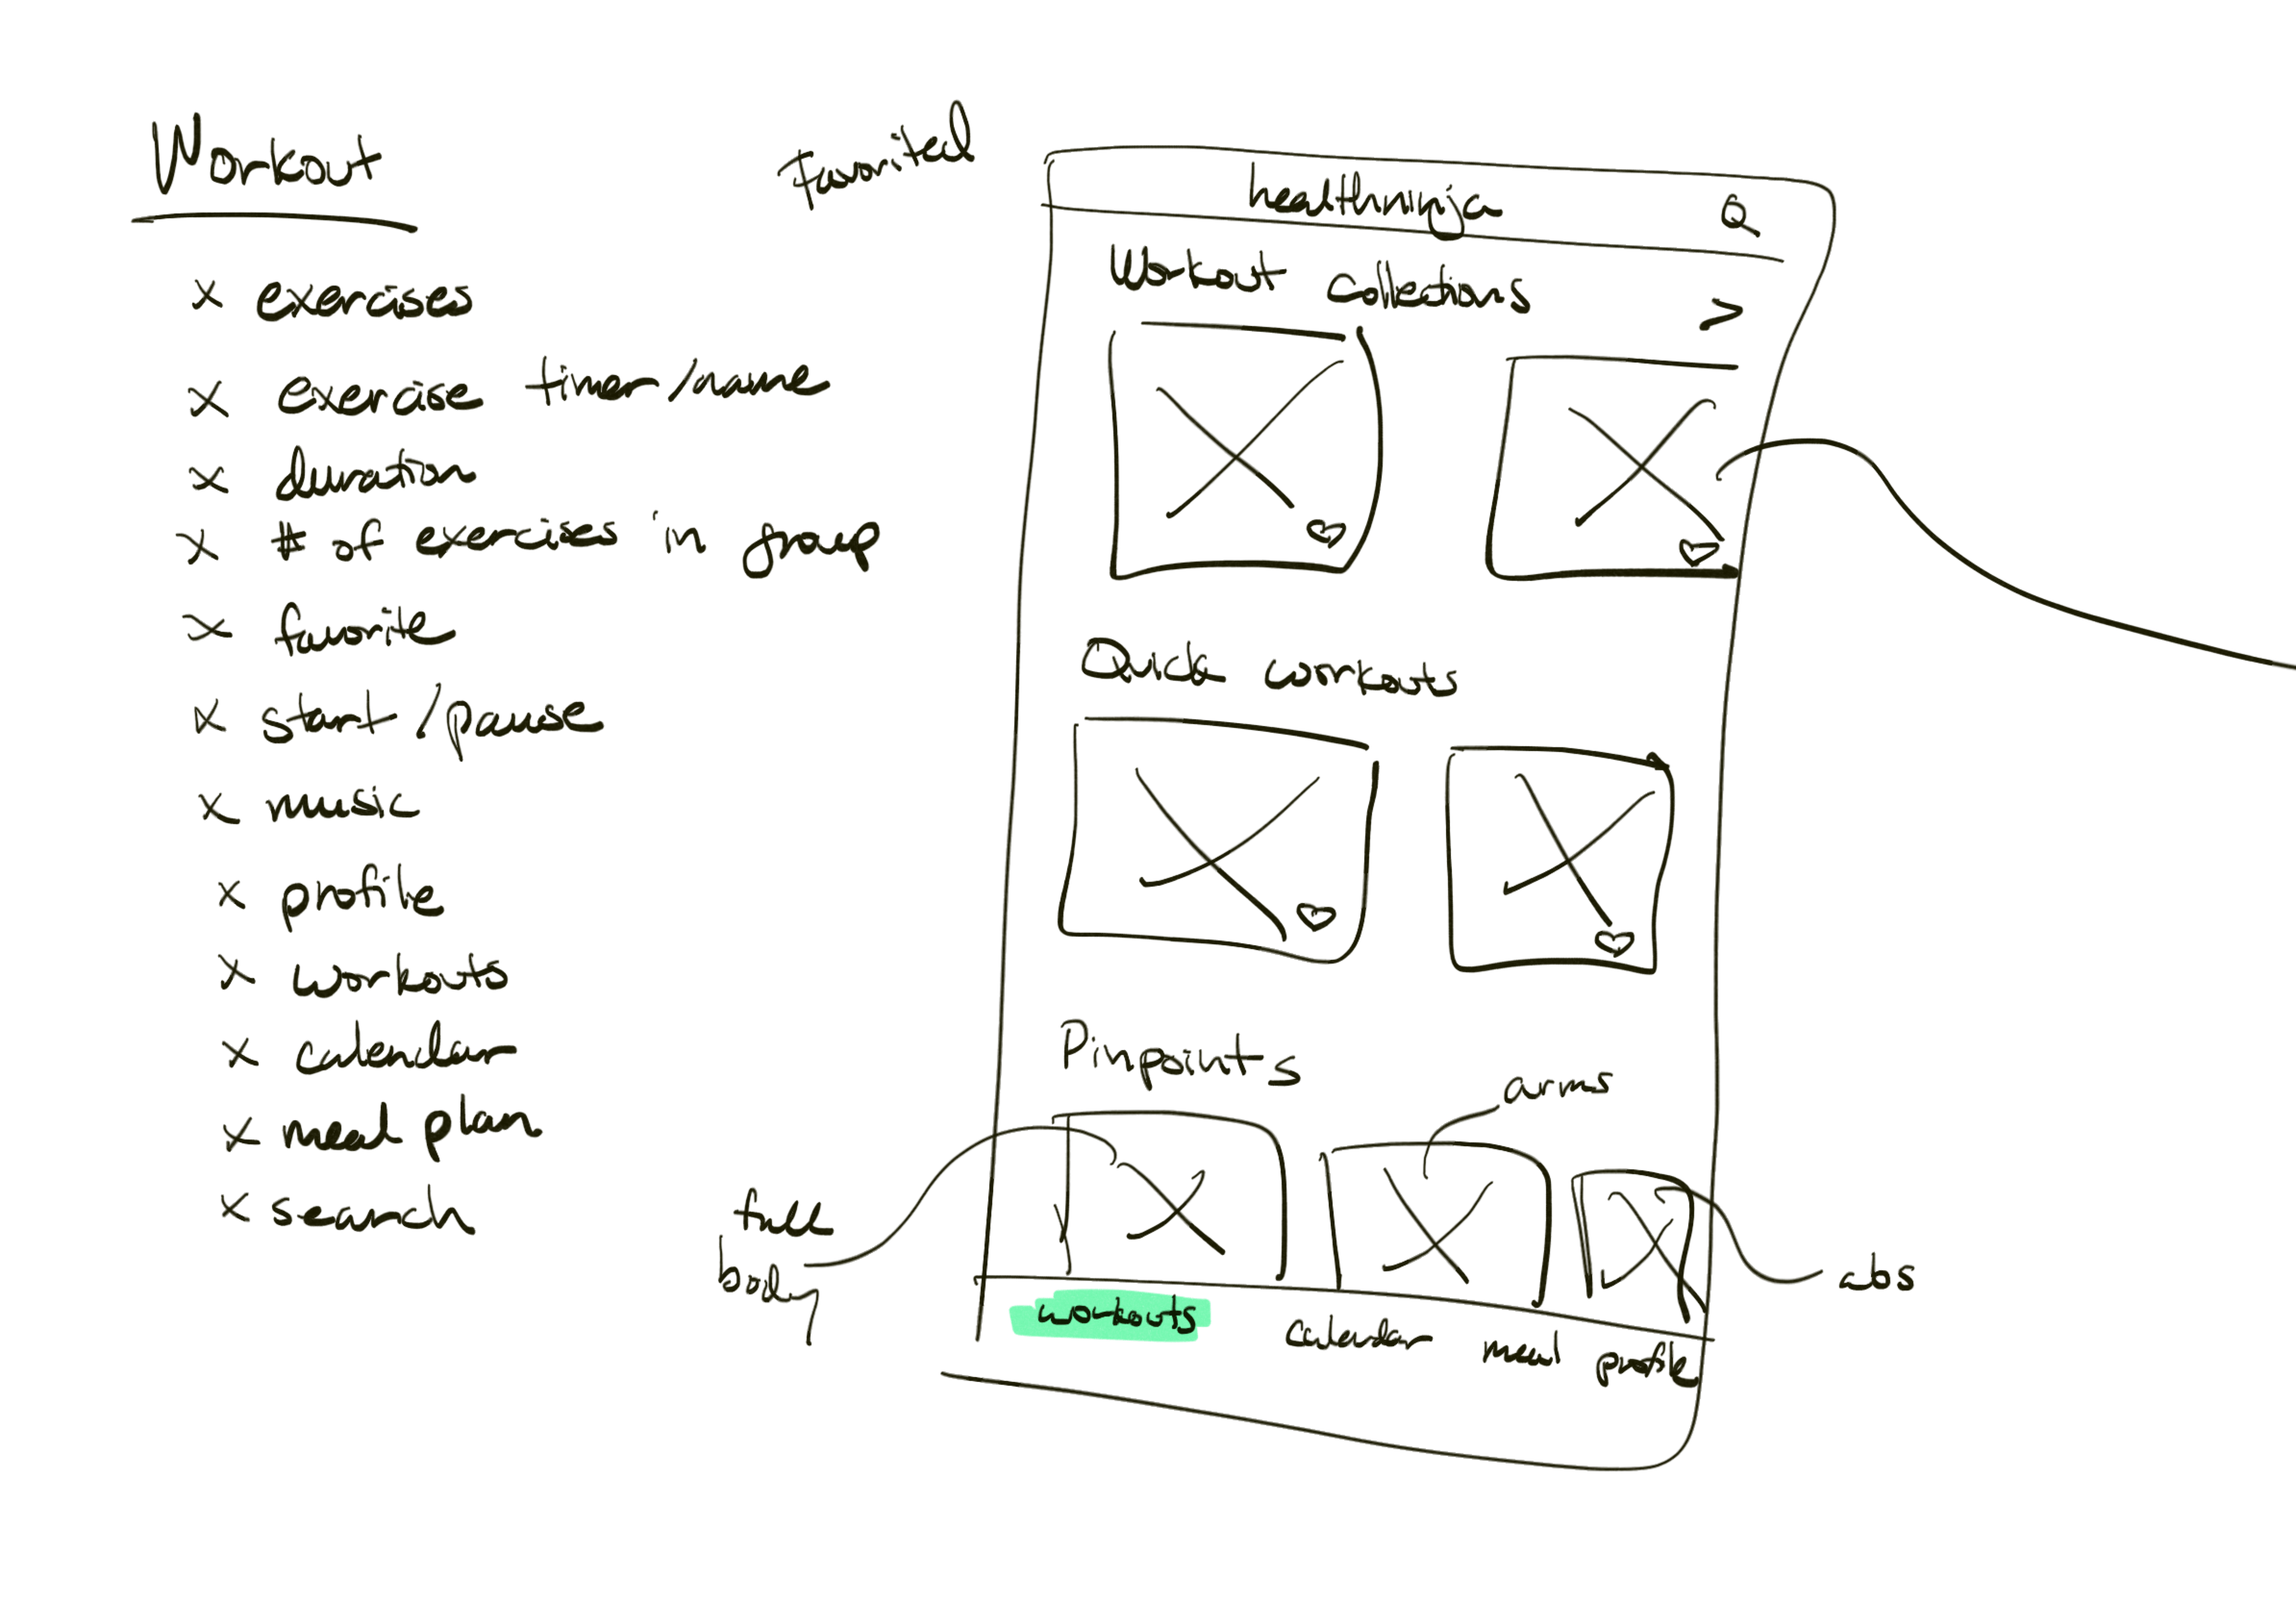 Workout
x exercises
x exercise timer/name
x duration
x # of exercises in group
x favorite
x start/pause
x music
x profile
x workouts
x calendar
x meal plan
x search
Favorited
healthninja
Workout collections >
Quick workouts
Pinpoints
arms
full
body
abs
workouts calendar meal profile